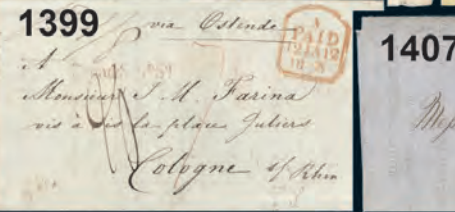 1399
via Ostende
PAID
1407
A
Monsieur J. M. Farina
vis à vis la place Juliers
Cologne s/ Rhin